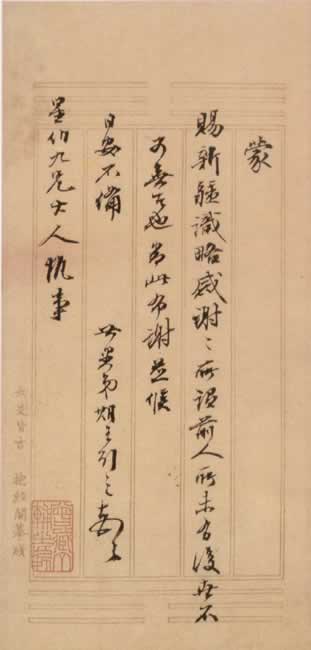 蒙
賜新疆識略感謝〻所謂前人所未有後世不
可無者也肅此布謝並候
日安不備
世愚弟期王引之頓首
星伯九兄大人執事